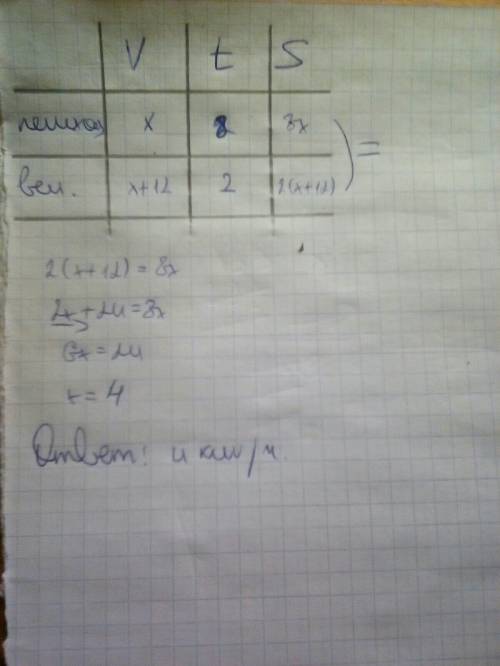 V t S
пешход x 8 8x
вел. x+12 2 2(x+12) ) =
2(x+12) = 8x
2x+24=8x
6x=24
x=4
Ответ: 4 км/ч.